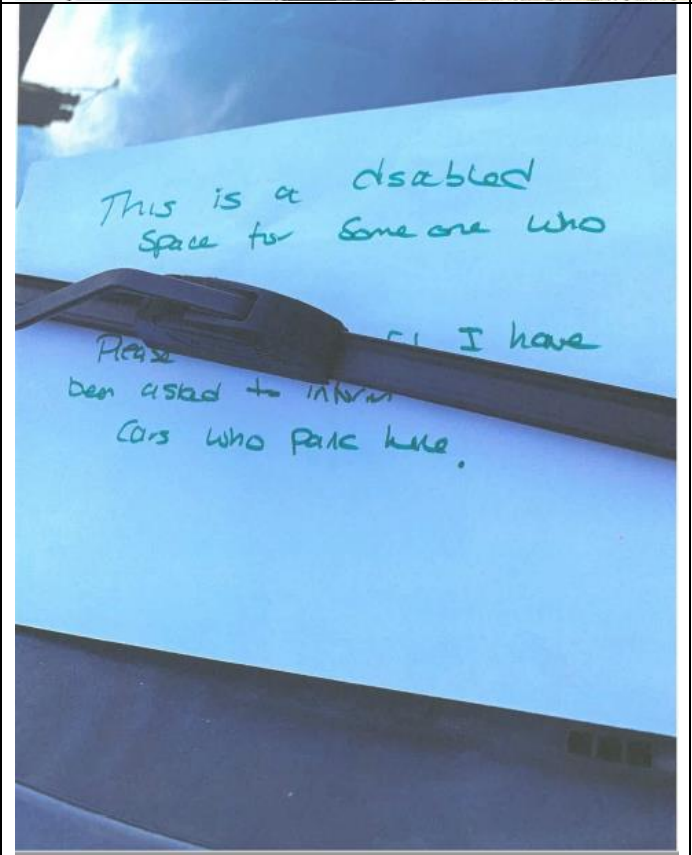 This is a dsabled
space for Someone who
Please I have
ben asked to inform
Cars who park here.